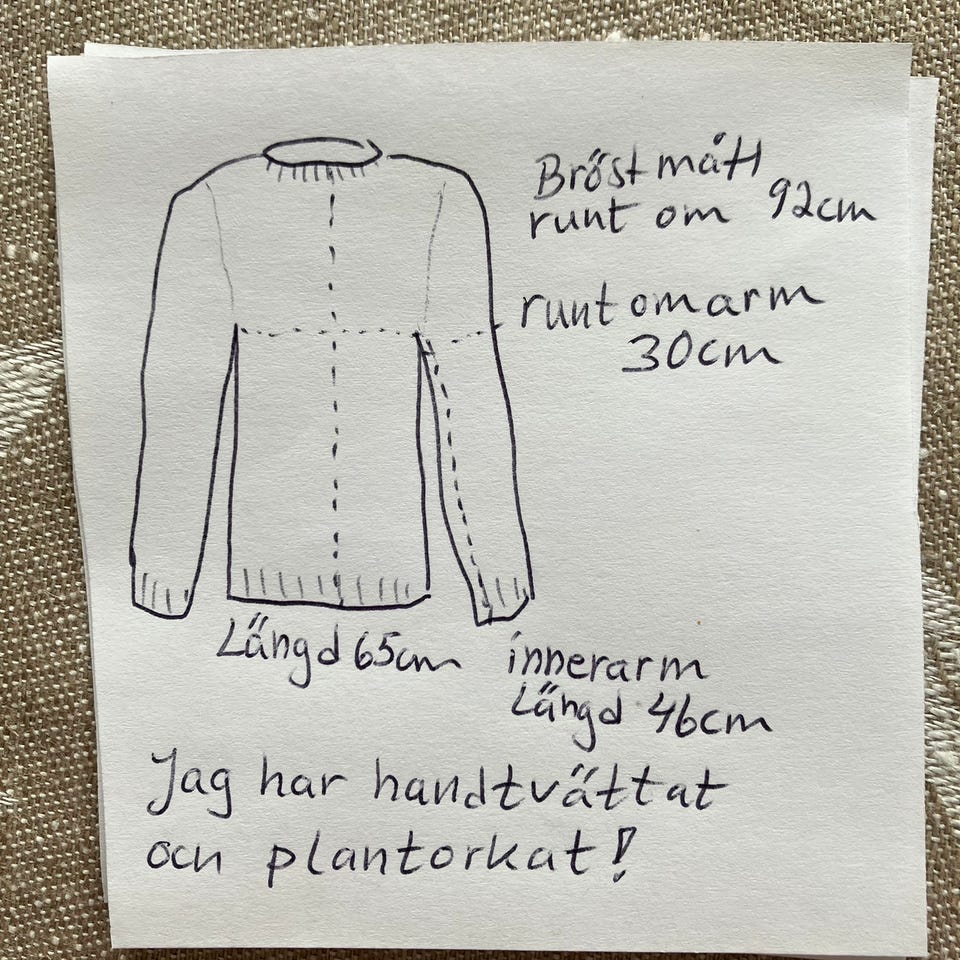 Bröstmått
runt om 92cm
runt om arm
30cm
Längd 65cm
innerarm
Längd 46cm
Jag har handtvättat
och plantorkat!